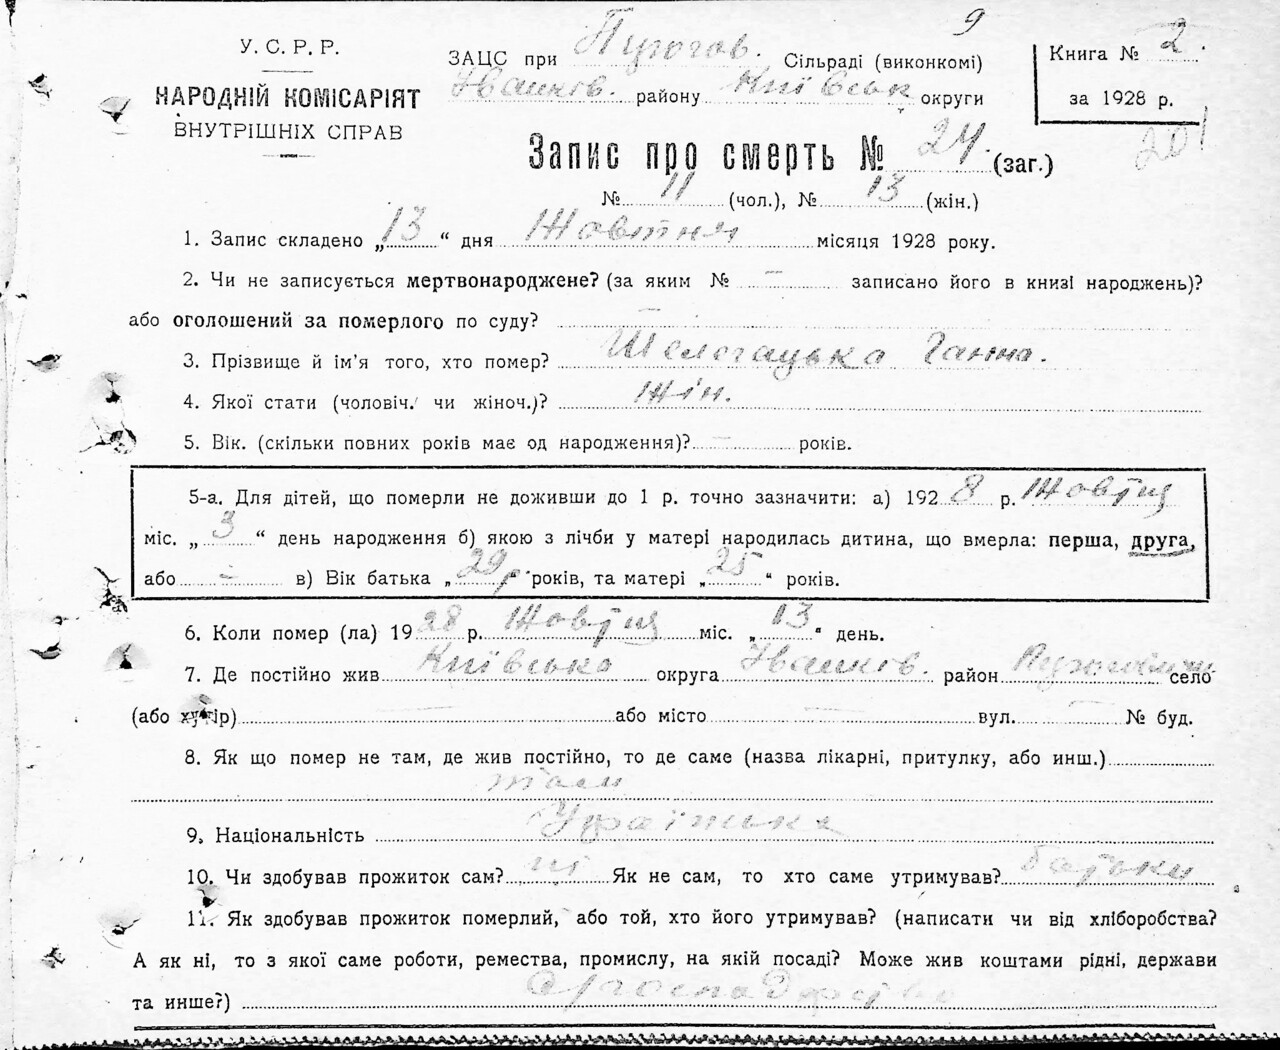 9
У. С. Р. Р.
НАРОДНІЙ КОМІСАРІЯТ
ВНУТРІШНІХ СПРАВ
ЗАЦС при Пирогов. Сільраді (виконкомі)
Іванків. району Київськ округи
Книга № 2.
за 1928 р.
201
Запис про смерть № 24. (заг.)
№ 11 (чол.), № 13 (жін.)
1. Запис складено „13“ дня Жовтня місяця 1928 року.
2. Чи не записується мертвонароджене? (за яким № — записано його в книзі народжень)?
або оголошений за померлого по суду? —
3. Прізвище й ім'я того, хто помер? Ганна.
4. Якої стати (чоловіч. чи жіноч.)? Жін.
5. Вік. (скільки повних років має од народження)? — років.
5-а. Для дітей, що померли не доживши до 1 р. точно зазначити: а) 1928 р. Жовтня
міс. „3“ день народження б) якою з лічби у матері народилась дитина, що вмерла: перша, друга,
або — в) Вік батька „29“ років, та матері „25“ років.
6. Коли помер (ла) 1928 р. Жовтня міс. „13“ день.
7. Де постійно жив Київська округа Іванків. район село
(або хутір) — або місто — вул. — № буд.
8. Як що помер не там, де жив постійно, то де саме (назва лікарні, притулку, або инш.)
там
9. Національність Українка
10. Чи здобував прожиток сам? ні Як не сам, то хто саме утримував? батьки
11. Як здобував прожиток померлий, або той, хто його утримував? (написати чи від хліборобства?
А як ні, то з якої саме роботи, ремества, промислу, на якій посаді? Може жив коштами рідні, держави
та инше?)